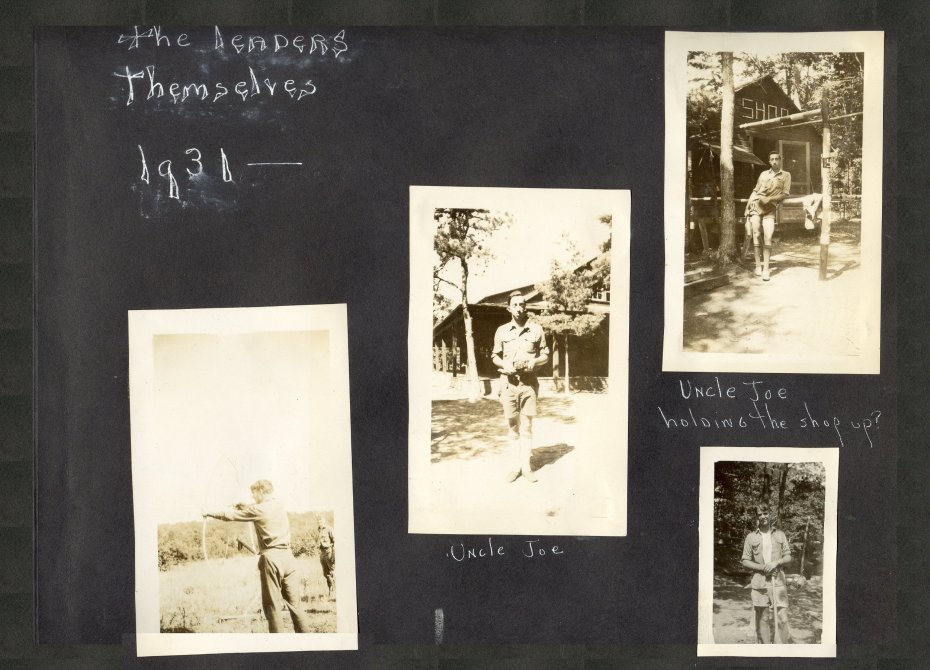 The Leaders
Themselves
1931 —
SHOP
Uncle Joe
holding the shop up?
Uncle Joe